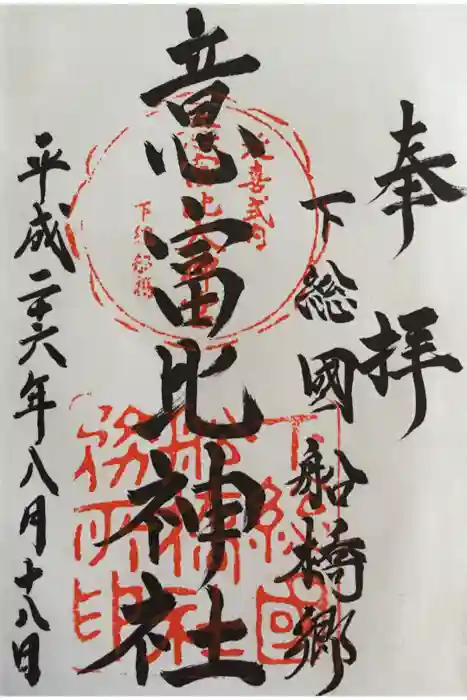 奉拝
下総國船橋郷
意富比神社
平成二十六年八月十八日
延喜式内
意富比神社
下総船橋
下総國
船橋社
務所印